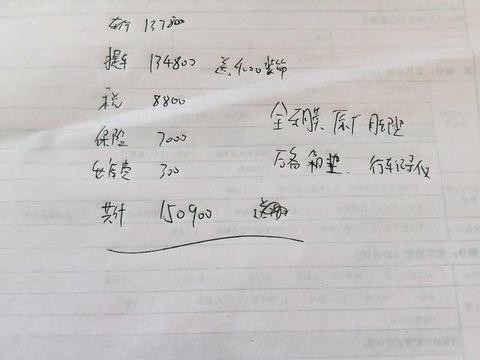 137800
提车 134800 送4000装饰
税 8800
保险 7000 全车膜、原厂脚垫
出库费 300 后备箱垫、行车记录仪
共计 150900